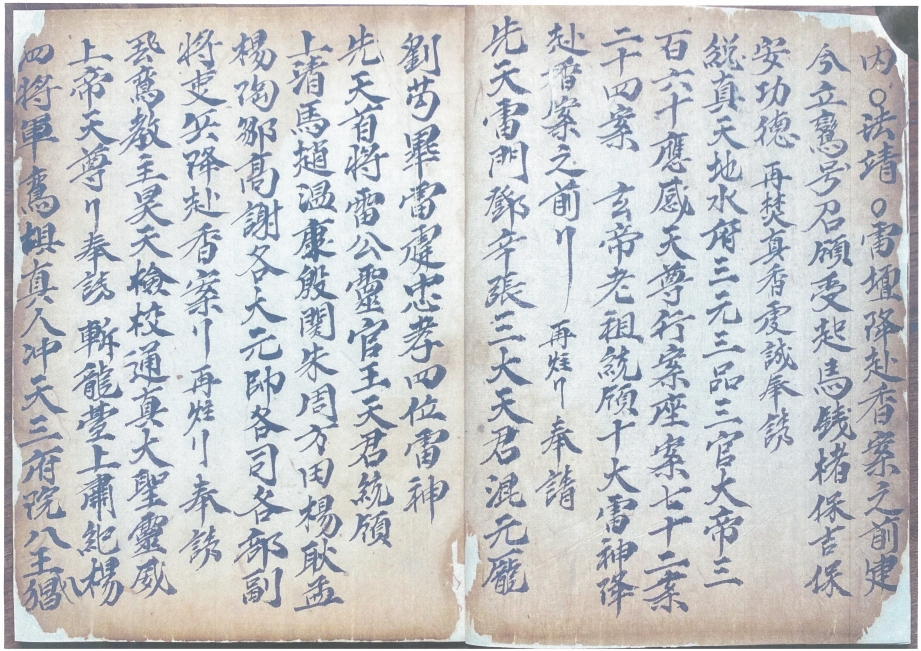 内○法靖○雷壇降赴香案之前建
今立鸞号召頋受起馬钱楮保吉保
安功德 再焚真香虔誠奉請
説真天地水府三元三品三官大帝三
百六十應感天尊行案座案七十二案
二十四案 玄帝老祖統頋十大雷神降
赴香案之前 再炷 奉請
先天雷門鄧辛張三大天君混元龐
劉茍畢雷霆忠孝四位雷神
先天首將雷公靈官王天君統頋
上清馬趙溫康殷関朱周方田楊耿孟
楊陶鄒髙謝各大元帥各司各部副
將吏兵降赴香案 再炷 奉請
飛鸞教主昊天檢校通真大聖靈威
上帝天尊 奉請 斬龍 上肅 楊
四將軍鸞 真人冲天三府院八王猖